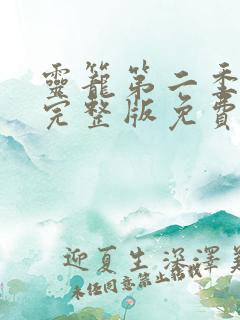 靈籠第二季
完整版免費
迎夏生深澤美
未经同意禁止转载